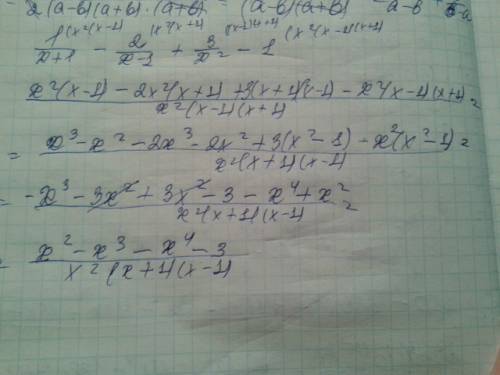 2(a-b)(a+b)·(a+b) (a-b)(a+b) a-b
1(x²(x-1) (x²(x+1) (x-1)(x+1) (x²(x-1)(x+1)
1/x+1 - 2/x-1 + 3/x² - 1
x²(x-1) - 2x²(x+1) + 3(x+1)(x-1) - x²(x-1)(x+1) / x²(x-1)(x+1) =
= x³ - x² - 2x³ - 2x² + 3(x²-1) - x²(x²-1) / x²(x+1)(x-1) =
= -x³ - 3x² + 3x² - 3 - x⁴ + x² / x²(x+1)(x-1) =
= x² - x³ - x⁴ - 3 / x²(x+1)(x-1)